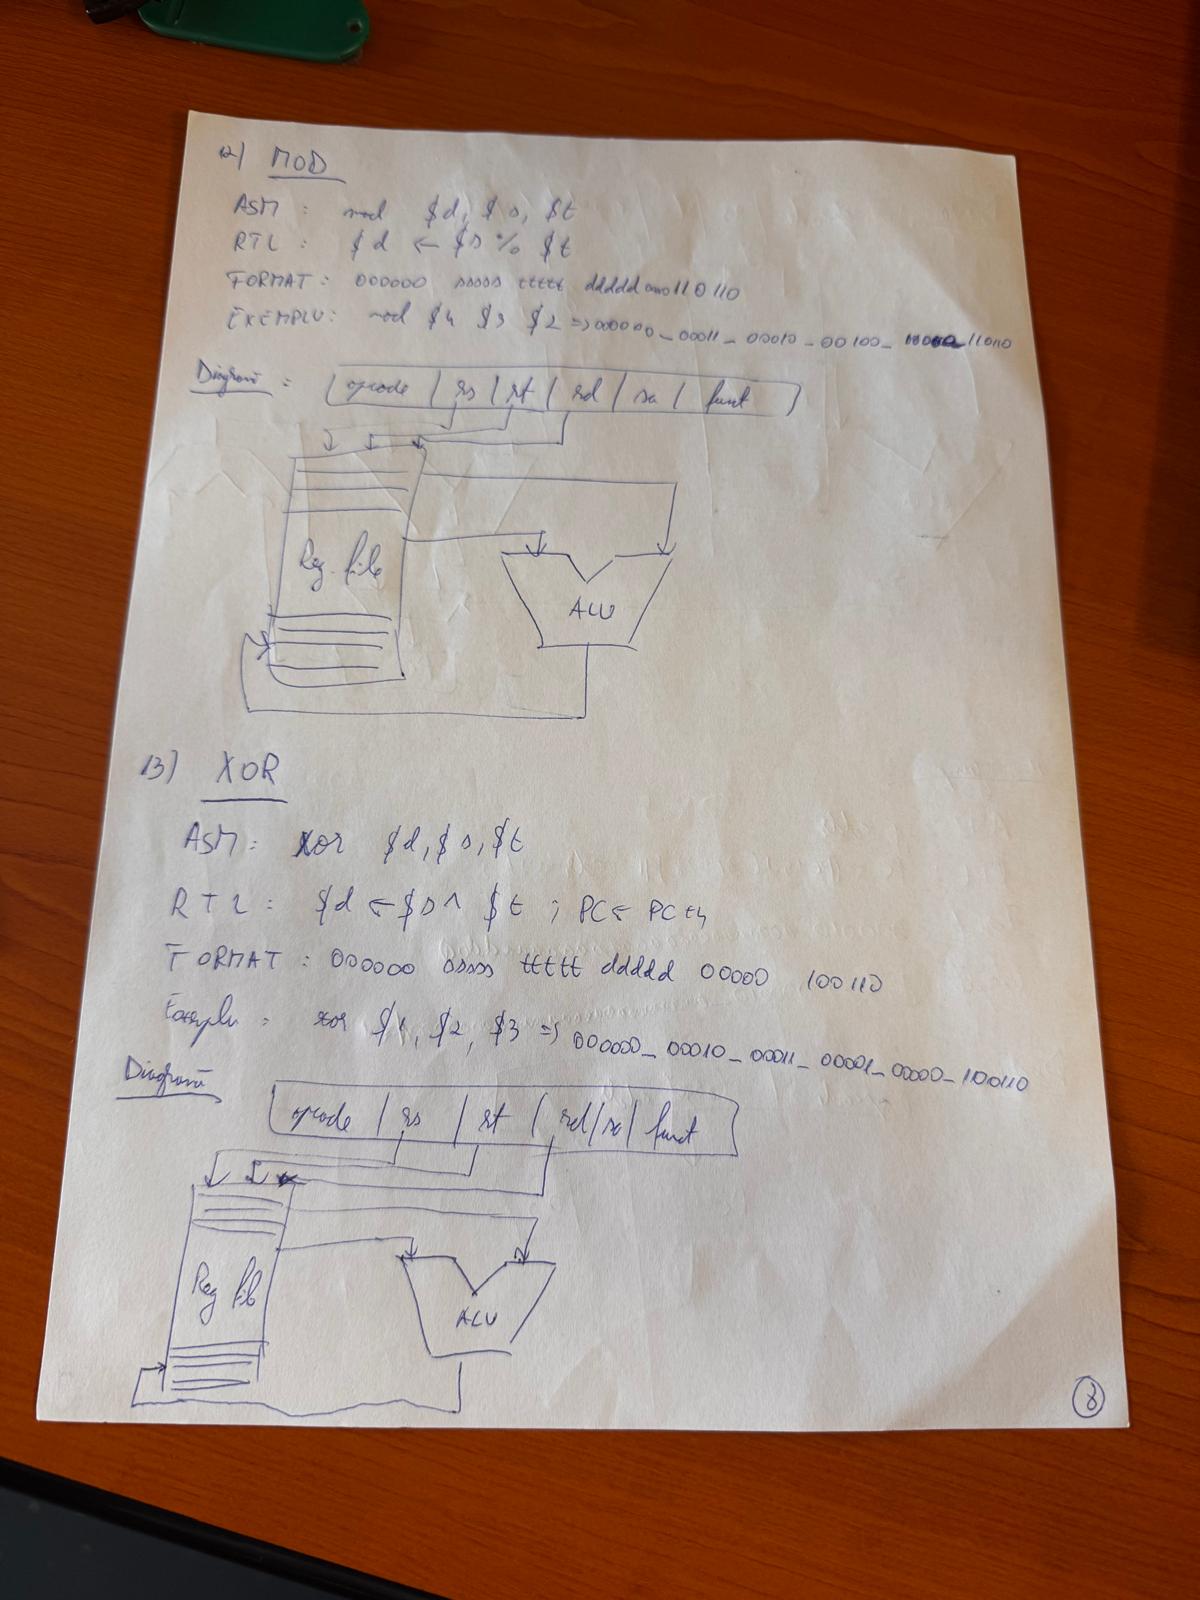 12) MOD
ASM : mod $d, $s, $t
RTL : $d ← $s % $t
FORMAT : 000000 sssss ttttt ddddd 110110
EXEMPLU : mod $4 $3 $2 => 000000_00011_00010_00100_ _110110
Diagramă :
opcode | rs | rt | rd | sa | funct
Reg. file
ALU
13) XOR
ASM : xor $d, $s, $t
RTL : $d ← $s ^ $t ; PC ← PC+4
FORMAT : 000000 sssss ttttt ddddd 00000 100110
Exemplu : xor $1, $2, $3 => 000000_00010_00011_00001_00000_100110
Diagramă
opcode | rs | rt | rd | sa | funct
Reg file
ALU
8